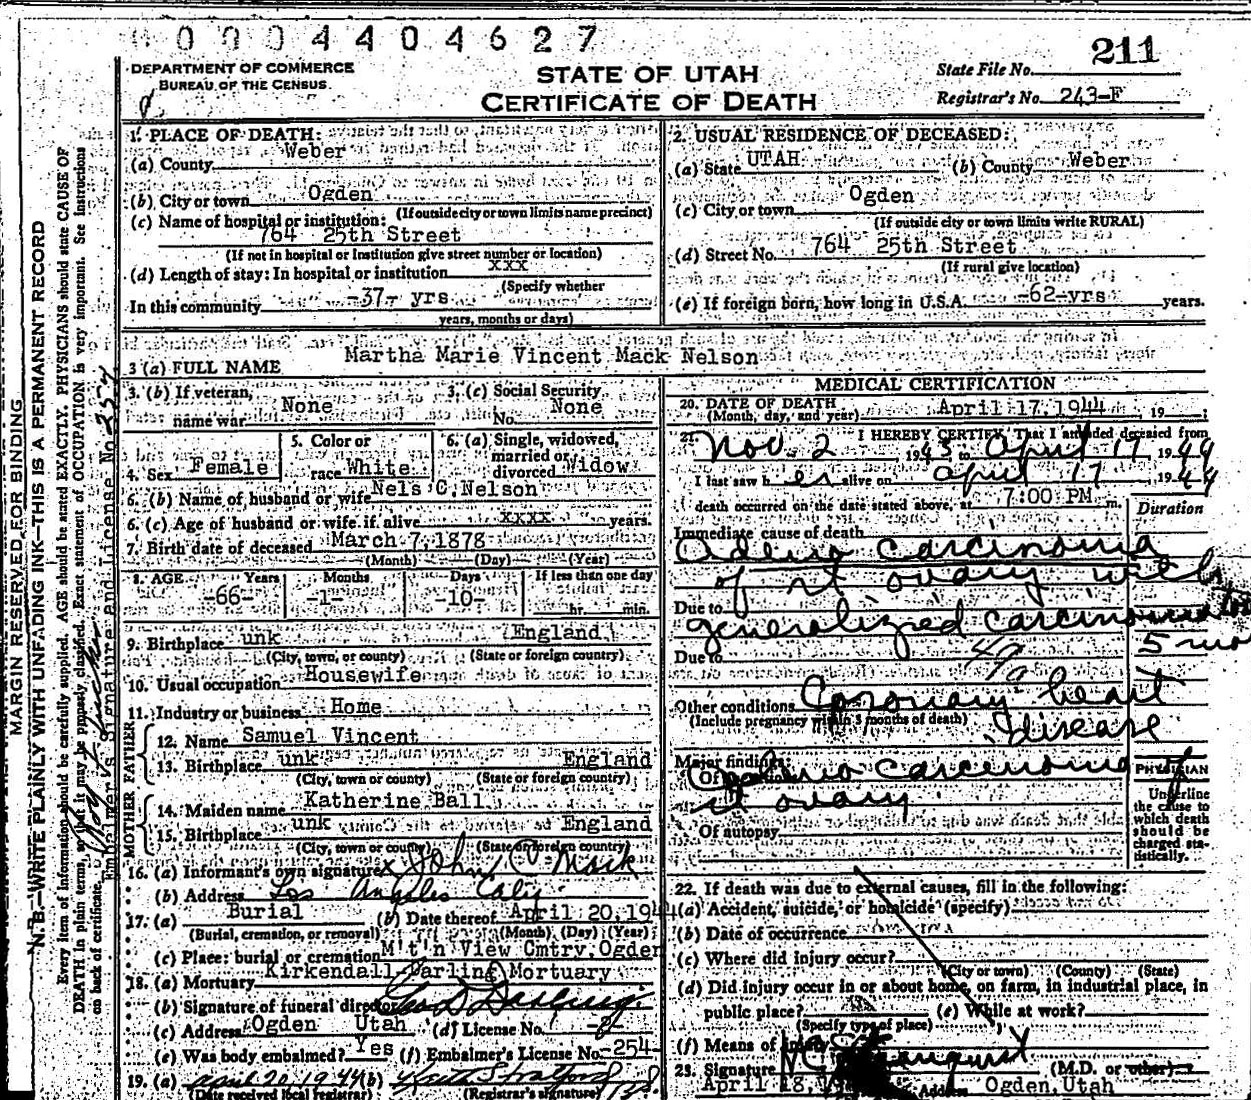 0 0 0 4 4 0 4 6 2 7
211
DEPARTMENT OF COMMERCE
BUREAU OF THE CENSUS
STATE OF UTAH
CERTIFICATE OF DEATH
State File No.
Registrar's No. 243-F
MARGIN RESERVED FOR BINDING
N. B.—WRITE PLAINLY WITH UNFADING INK—THIS IS A PERMANENT RECORD
Every item of information should be carefully supplied. AGE should be stated EXACTLY. PHYSICIANS should state CAUSE OF
DEATH in plain terms, so that it may be properly classified. Exact statement of OCCUPATION is very important. See instructions
on back of certificate.
Embalmer's Signature and License No. 254
1. PLACE OF DEATH:
(a) County Weber
(b) City or town Ogden
(If outside city or town limits name precinct)
(c) Name of hospital or institution:
764 25th Street
(If not in hospital or Institution give street number or location)
(d) Length of stay: In hospital or institution xxx
(Specify whether
In this community -37- yrs
years, months or days)
2. USUAL RESIDENCE OF DECEASED:
(a) State UTAH (b) County Weber
(c) City or town Ogden
(If outside city or town limits write RURAL)
(d) Street No. 764 25th Street
(If rural give location)
(e) If foreign born, how long in U.S.A. -62-yrs years.
3 (a) FULL NAME Martha Marie Vincent Mack Nelson
3. (b) If veteran, name war None
3. (c) Social Security No. None
4. Sex Female
5. Color or race White
6. (a) Single, widowed, married or divorced Widow
6. (b) Name of husband or wife Nels C. Nelson
6. (c) Age of husband or wife if alive xxxx years.
7. Birth date of deceased March 7, 1878
(Month) (Day) (Year)
8. AGE Years Months Days If less than one day
-66- -1- -10- hr. min.
9. Birthplace unk England
(City, town, or county) (State or foreign country)
10. Usual occupation Housewife
11. Industry or business Home
FATHER
12. Name Samuel Vincent
13. Birthplace unk England
(City, town or county) (State or foreign country)
MOTHER
14. Maiden name Katherine Ball
15. Birthplace unk England
(City, town or county) (State or foreign country)
16. (a) Informant's own signature x John C. Mack
(b) Address Los Angeles Calif
17. (a) Burial (b) Date thereof April 20, 1944
(Burial, cremation, or removal) (Month) (Day) (Year)
(c) Place: burial or cremation M't'n View Cmtry, Ogden
18. (a) Mortuary Kirkendall-Darling Mortuary
(b) Signature of funeral director Darling
(c) Address Ogden Utah (d) License No. -8-
(e) Was body embalmed? Yes (f) Embalmer's License No. -254-
19. (a) April 20, 1944 (b) Keith Stratford
(Date received local registrar) (Registrar's signature)
MEDICAL CERTIFICATION
20. DATE OF DEATH April 17, 1944 19
(Month, day, and year)
21. I HEREBY CERTIFY, That I attended deceased from
Nov. 2 1943 to April 17 1944
I last saw her alive on April 17 1944
death occurred on the date stated above, at 7:00 PM m.
Duration
Immediate cause of death
Adeno carcinoma
of rt ovary with
Due to
generalized carcinoma
5 mo
Due to
Other conditions Coronary heart
(Include pregnancy within 3 months of death)
disease
Major findings:
Of operations Adeno carcinoma
rt ovary
Of autopsy
PHYSICIAN
Underline
the cause to
which death
should be
charged sta-
tistically.
22. If death was due to external causes, fill in the following:
(a) Accident, suicide, or homicide (specify)
(b) Date of occurrence
(c) Where did injury occur?
(City or town) (County) (State)
(d) Did injury occur in or about home, on farm, in industrial place, in
public place? (e) While at work?
(Specify type of place)
(f) Means of injury
23. Signature (M.D. or other)
April 18, Address Ogden, Utah